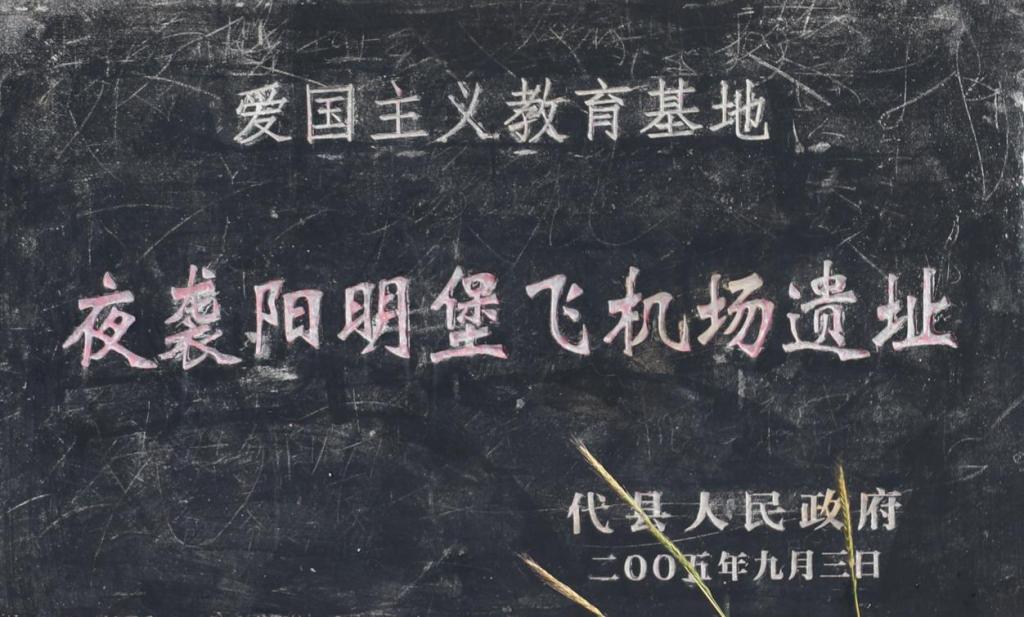 爱国主义教育基地
夜袭阳明堡飞机场遗址
代县人民政府
二〇〇五年九月三日